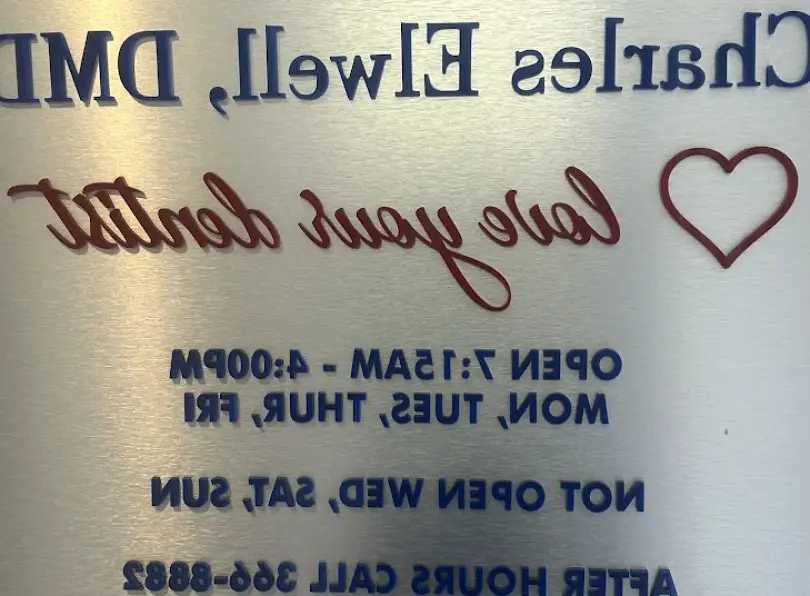 Charles Elwell, DMD
love your dentist
OPEN 7:15AM - 4:00PM
MON, TUES, THUR, FRI
NOT OPEN WED, SAT, SUN
AFTER HOURS CALL 366-8882